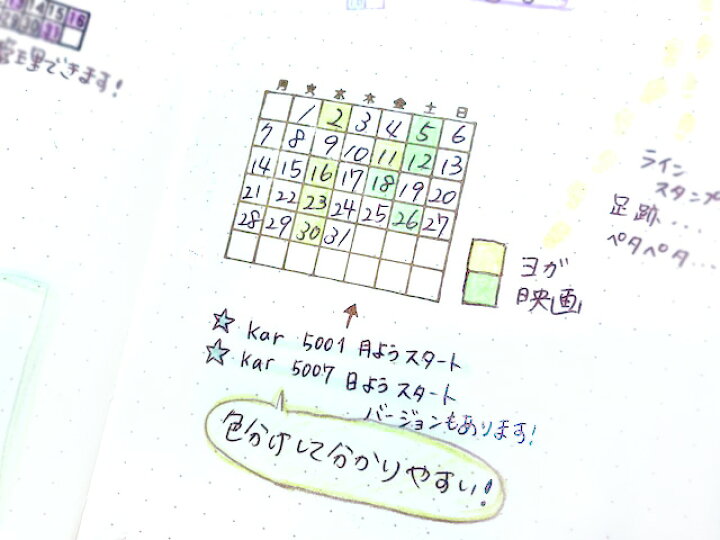 14 15 16
管理できます!
月 火 水 木 金 土 日
1 2 3 4 5 6
7 8 9 10 11 12 13
14 15 16 17 18 19 20
21 22 23 24 25 26 27
28 29 30 31
ヨガ
映画
☆ Kar 5001 月ようスタート
☆ Kar 5007 日ようスタート
バージョンもあります!
色分けして分かりやすい!
ライン
スタンプ
足跡...
ペタペタ...